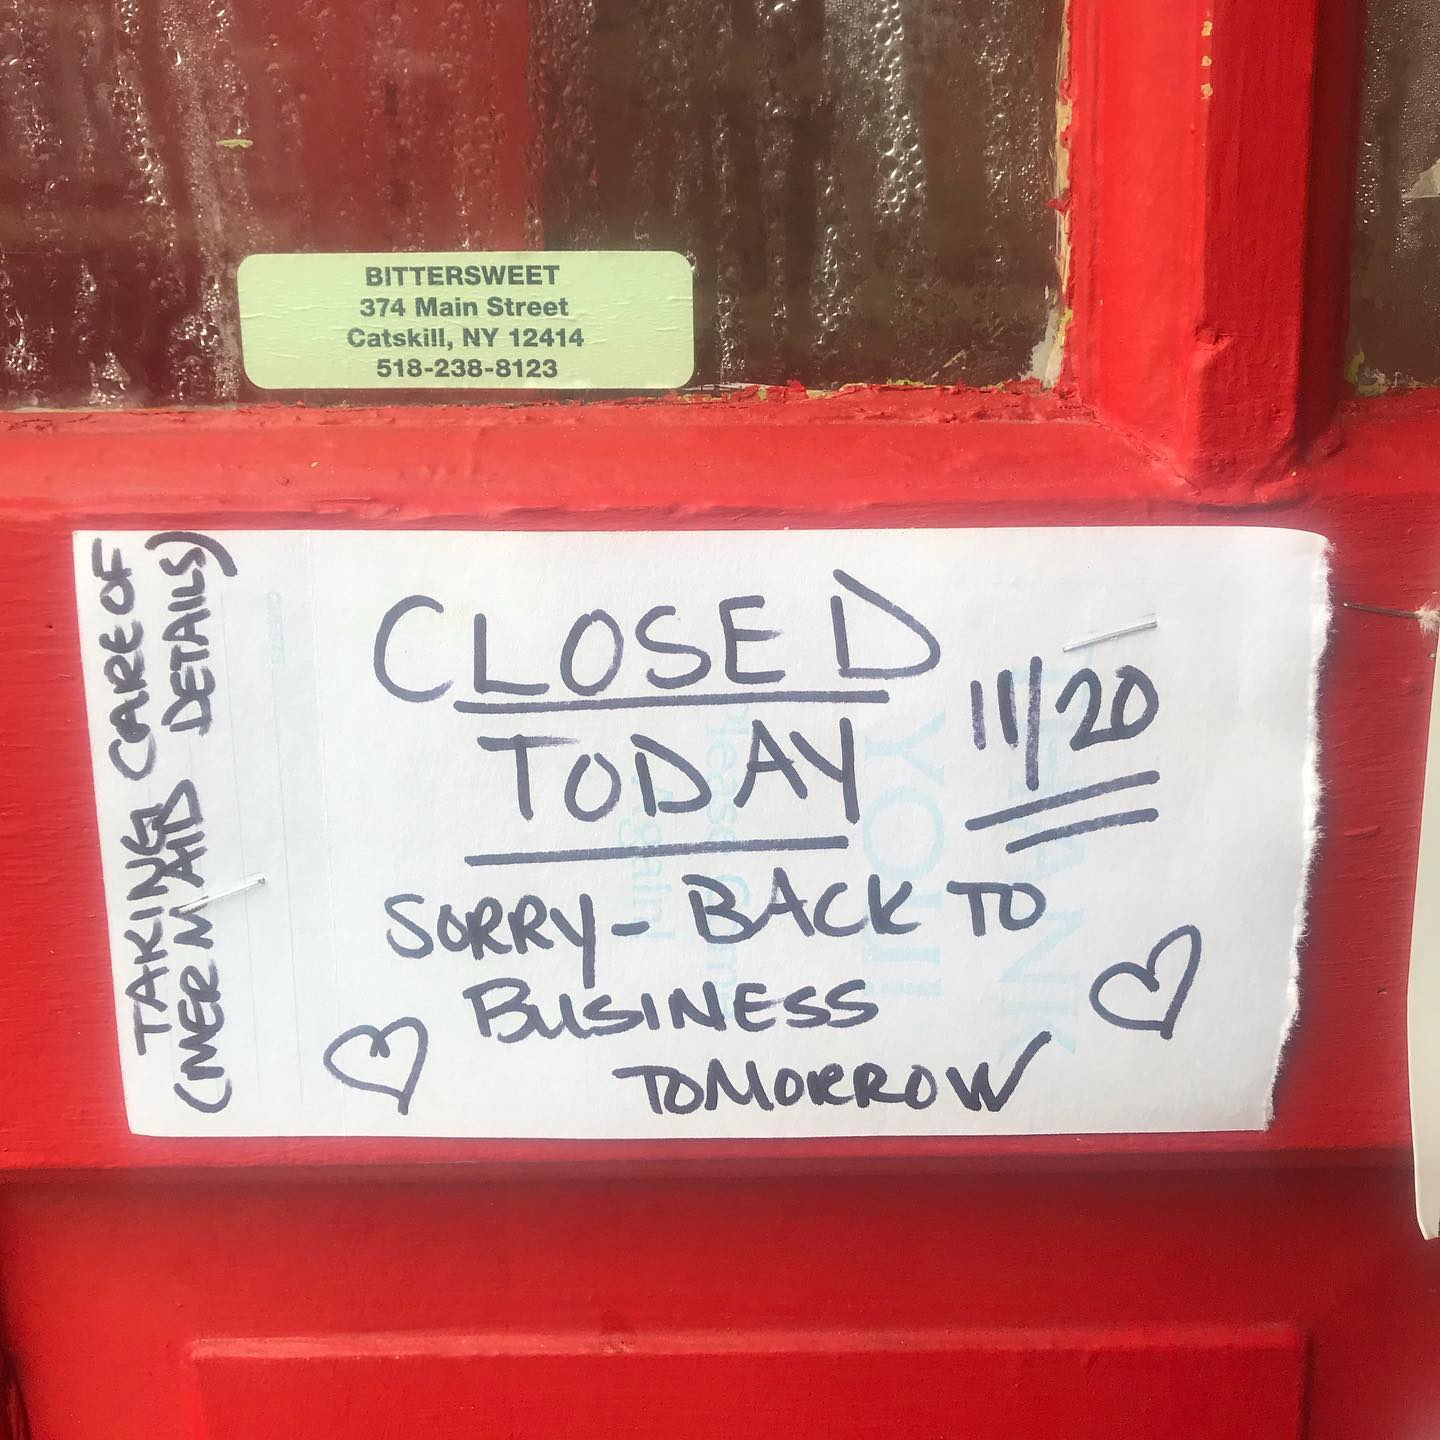 BITTERSWEET
374 Main Street
Catskill, NY 12414
518-238-8123
CLOSED
TODAY 11/20
SORRY- BACK TO
BUSINESS
TOMORROW
TAKING CARE OF
(MERMAID DETAILS)
THANK
YOU!
Please Come
Again!